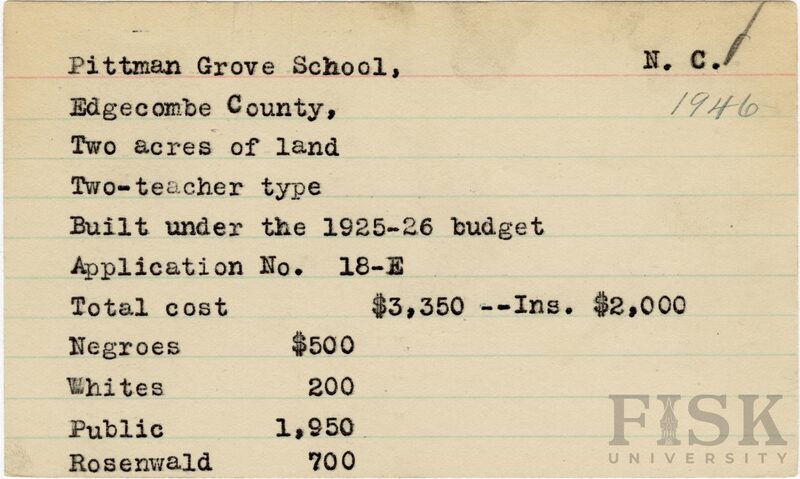 Pittman Grove School, N. C.
1946
Edgecombe County,
Two acres of land
Two-teacher type
Built under the 1925-26 budget
Application No. 18-E
Total cost $3,350 --Ins. $2,000
Negroes $500
Whites 200
Public 1,950
Rosenwald 700
FISK
UNIVERSITY